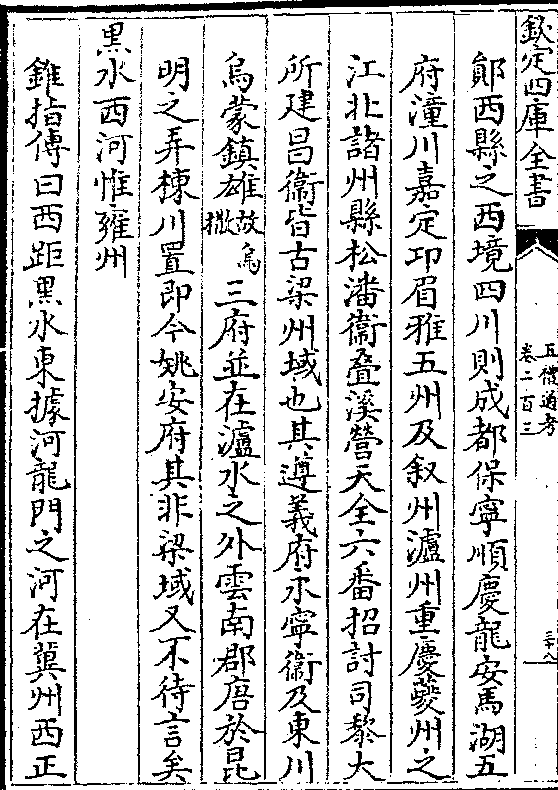 欽定四庫全書
五禮通考
卷二百三
三十八
鄖西縣之西境四川則成都保寧順慶龍安馬湖五
府潼川嘉定邛眉雅五州及叙州瀘州重慶夔州之
江北諸州縣松潘衞疊溪營天全六番招討司黎大
所建昌衞皆古梁州域也其遵義府永寧衞及東川
烏蒙鎮雄故烏撒三府並在瀘水之外雲南郡唐於昆
明之弄棟川置即今姚安府其非梁域又不待言矣
黒水西河惟雍州
錐指傳曰西距黒水東據河龍門之河在冀州西正